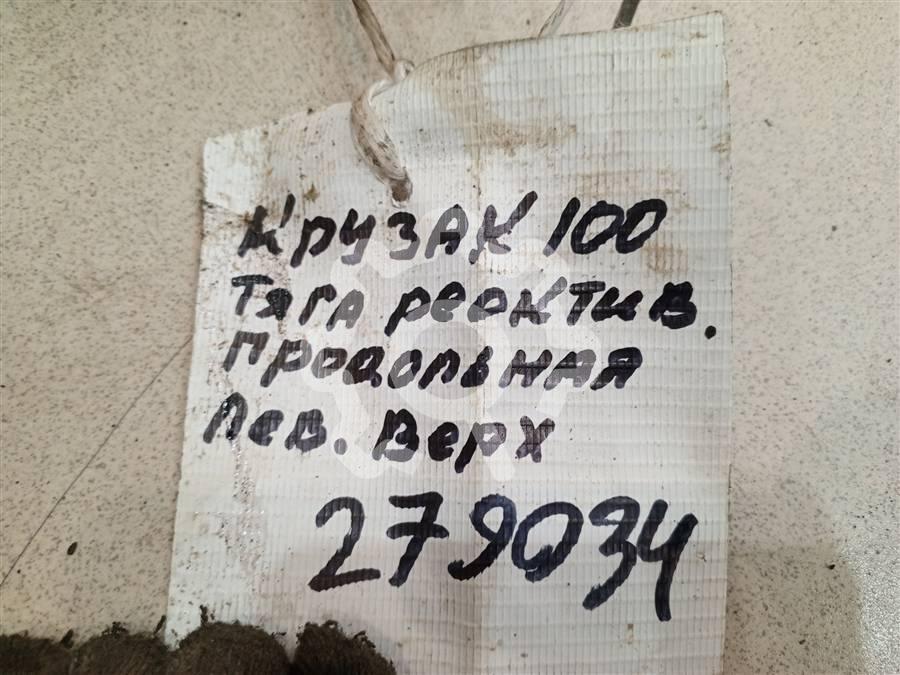 Крузак 100
Тяга реактив.
продольная
Лев. верх
279034